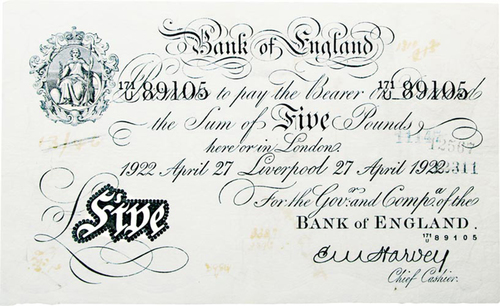 Bank of England
171/U 89105 171/U 89105
to pay the Bearer
the Sum of Five Pounds
here or in London
1922 April 27 Liverpool 27 April 1922
For the Govr. and Compa. of the
BANK OF ENGLAND.
171/U 89105
Five
E M Harvey
Chief Cashier.